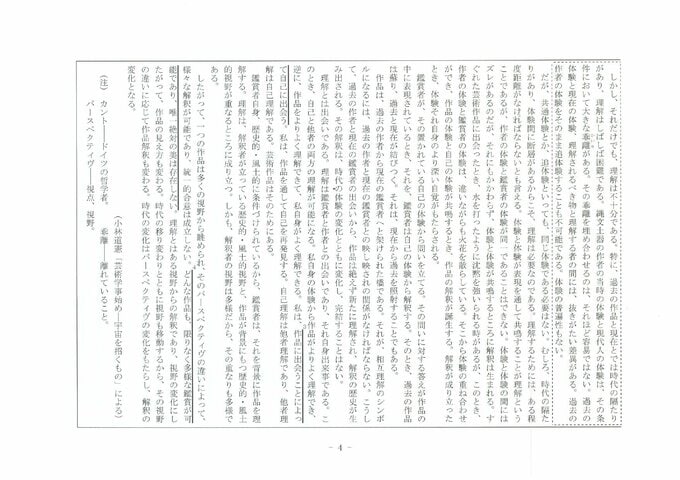 しかし、それだけでも、理解は不十分である。特に、過去の作品と現在とでは時代の隔たり
があり、理解はしばしば困難である。縄文土器の作者の当時の体験と現代人の体験は、その条
件において大きな乖離がある。その乖離を埋め合わせるのは、それほど容易ではない。過去の
体験と現在の体験、理解されるべき者と理解する者の間には、抜きがたい差異がある。過去の
作者の体験をそのまま追体験することも不可能である。体験の普遍性もない。
だが、共通体験とか、追体験といっても、同じ体験である必要はない。むしろ、時代の隔た
りがあり、体験間に断層があるからこそ、理解は必要なのである。理解するためには、ある程
度距離がなければならないとも言える。体験と体験が表現を通して共鳴することが理解という
ことであるが、作者の体験と鑑賞者の体験が同一であることはできない。体験と体験の間には
ズレがあるのだが、それにもかかわらず、体験と体験が共鳴するところに解釈は生まれる。す
ぐれた芸術作品に出会ったとき、水を打ったように沈黙を強いられる事があるが、このとき、
作者の体験と鑑賞者の体験は、違いながらも火花を散らしている。そこから体験の重ね合わせ
ができ、作品の体験と自己の体験が共鳴するとき、作品の解釈が誕生する。解釈が成り立った
とき、体験それ自身のより深い自覚がもたらされる。
鑑賞者が、その置かれている自己の体験から問いを立てる。その問いに対する答えが作品の
中に表現されているとき、それを、鑑賞者は自己の体験から解釈する。そのとき、過去の作品
は蘇り、過去と現在が結びつく。それは、現在から過去を照射することでもある。
作品は、過去の作者から現在の鑑賞者へと架けられた橋である。それが、相互理解のシンボ
ルになるには、過去の作者と現在の鑑賞者との映し映される関係がなければならない。こうし
て、過去の作者と現在の鑑賞者の出会いから、作品は絶えず新たに理解され、解釈の歴史が生
み出される。その解釈は、時代の体験の変化とともに変化し、完結することはない。
理解とは出会いである。理解は鑑賞者と作者との出会いであり、それ自身出来事である。こ
のとき、自己と他者の両方の理解が可能になる。私自身の体験から作品がよりよく理解でき、
逆に、作品をよりよく理解できて、私自身がよりよく理解できる。私は、作品に出会うことによっ
て自己に出会う。私は、作品を通して自己を再発見する。自己理解は他者理解であり、他者理
解は自己理解である。芸術作品はそのためにある。
鑑賞者自身、歴史的・風土的に条件づけられているから、鑑賞者は、それを背景に作品を理
解する。理解は、解釈者が立っている歴史的・風土的視野と、作品が背景にもつ歴史的・風土
的視野が重なるところに成り立つ。しかも、解釈者の視野は多様だから、その重なりも多様で
ある。
したがって、一つの作品は多くの視野から眺められ、そのパースペクティヴの違いによって、
様々な解釈が可能であり、統一的合意は成立しない。どんな作品も、限りなく多様な鑑賞が可
能であり、唯一絶対の美は存在しない。理解とはある視野からの解釈であり、視野の変化にし
たがって、作品の見え方も変わる。時代の移り変わりとともに視野も移動するから、その視野
の違いに応じて作品解釈も変わる。時代の変化はパースペクティヴの変化をもたらし、解釈の
変化となる。
(小林道憲「芸術学事始め―宇宙を招くもの」による)
(注) カント――ドイツの哲学者。
乖離――離れていること。
パースペクティヴ――視点、視野。
- 4 -